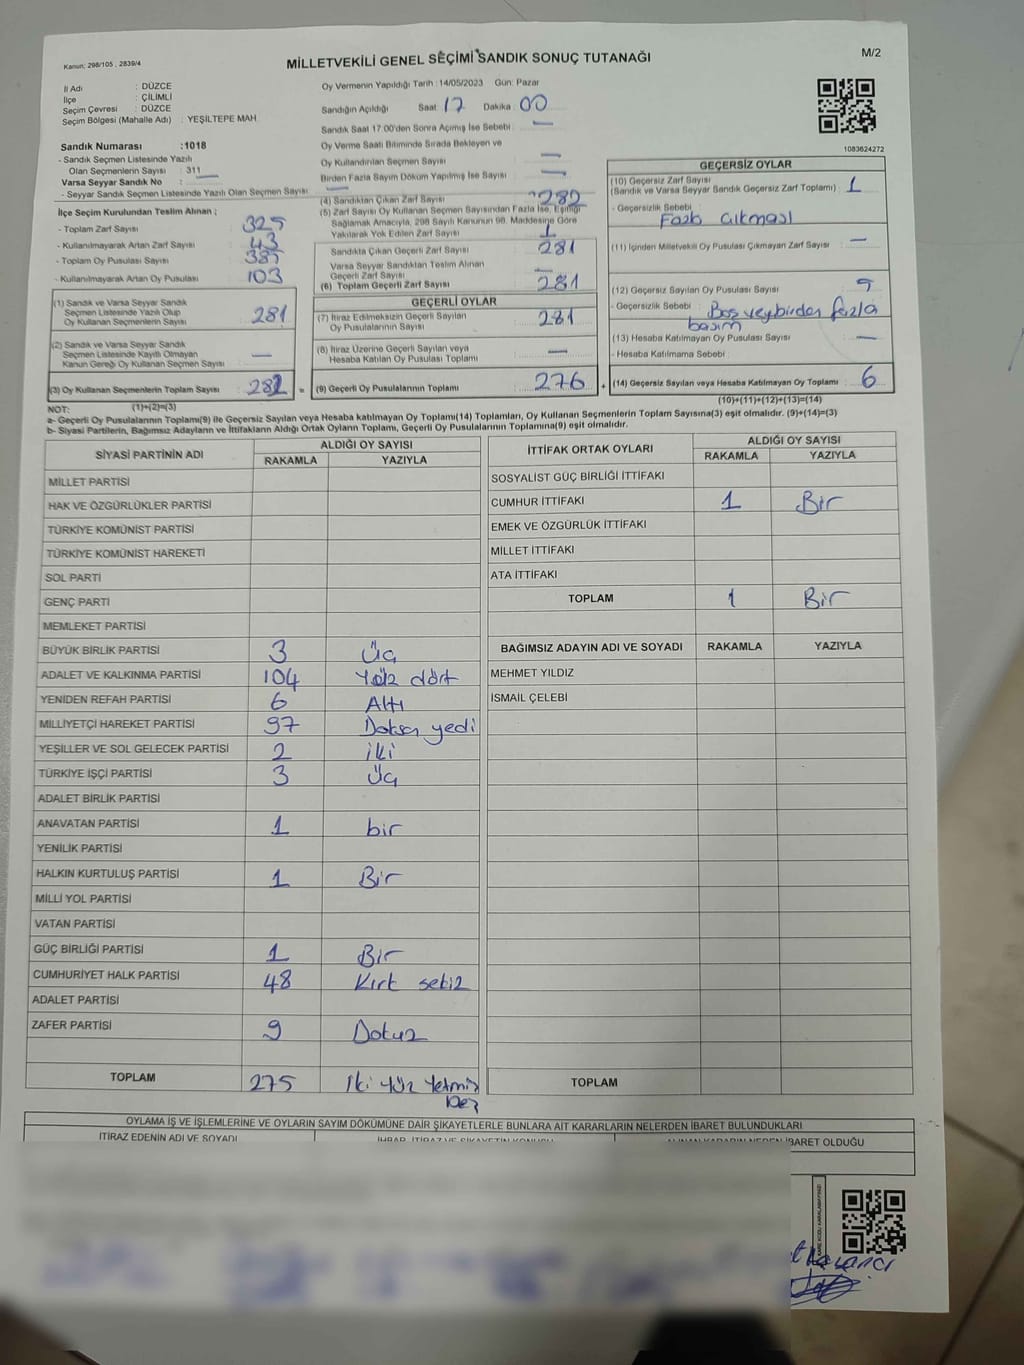 Kanun: 298/105 , 2839/4
MİLLETVEKİLİ GENEL SEÇİMİ SANDIK SONUÇ TUTANAĞI
M/2
İl Adı : DÜZCE
İlçe : ÇİLİMLİ
Seçim Çevresi : DÜZCE
Seçim Bölgesi (Mahalle Adı) : YEŞİLTEPE MAH
Sandık Numarası :1018
- Sandık Seçmen Listesinde Yazılı
Olan Seçmenlerin Sayısı : 311
Varsa Seyyar Sandık No : —
- Seyyar Sandık Seçmen Listesinde Yazılı Olan Seçmen Sayısı : —
İlçe Seçim Kurulundan Teslim Alınan ;
- Toplam Zarf Sayısı : 325
- Kullanılmayarak Artan Zarf Sayısı : 43
- Toplam Oy Pusulası Sayısı : 385
- Kullanılmayarak Artan Oy Pusulası : 103
(1) Sandık ve Varsa Seyyar Sandık
Seçmen Listesinde Yazılı Olup
Oy Kullanan Seçmenlerin Sayısı : 281
(2) Sandık ve Varsa Seyyar Sandık
Seçmen Listesinde Kayıtlı Olmayan
Kanun Gereği Oy Kullanan Seçmen Sayısı : —
(3) Oy Kullanan Seçmenlerin Toplam Sayısı : 282 =
(1)+(2)=(3)
Oy Vermenin Yapıldığı Tarih :14/05/2023 Gün: Pazar
Sandığın Açıldığı Saat 17 Dakika : 00
Sandık Saat 17:00'den Sonra Açılmış İse Sebebi : —
Oy Verme Saati Bitiminde Sırada Bekleyen ve
Oy Kullandırılan Seçmen Sayısı : —
Birden Fazla Sayım Döküm Yapılmış İse Sayısı : —
(4) Sandıktan Çıkan Zarf Sayısı : 282
(5) Zarf Sayısı Oy Kullanan Seçmen Sayısından Fazla İse, Eşitliği
Sağlamak Amacıyla, 298 Sayılı Kanunun 98. Maddesine Göre
Yakılarak Yok Edilen Zarf Sayısı : 1
Sandıkta Çıkan Geçerli Zarf Sayısı : 281
Varsa Seyyar Sandıktan Teslim Alınan
Geçerli Zarf Sayısı : —
(6) Toplam Geçerli Zarf Sayısı : 281
GEÇERLİ OYLAR
(7) İtiraz Edilmeksizin Geçerli Sayılan
Oy Pusulalarının Sayısı : 281
(8) İtiraz Üzerine Geçerli Sayılan veya
Hesaba Katılan Oy Pusulası Toplamı : —
(9) Geçerli Oy Pusulalarının Toplamı : 276 +
1083624272
GEÇERSİZ OYLAR
(10) Geçersiz Zarf Sayısı
(Sandık ve Varsa Seyyar Sandık Geçersiz Zarf Toplamı) : 1
- Geçersizlik Sebebi :
Fazla çıkması
(11) İçinden Milletvekili Oy Pusulası Çıkmayan Zarf Sayısı : —
(12) Geçersiz Sayılan Oy Pusulası Sayısı :
- Geçersizlik Sebebi : Boş veybirden fazla
basım
(13) Hesaba Katılmayan Oy Pusulası Sayısı : —
- Hesaba Katılmama Sebebi :
(14) Geçersiz Sayılan veya Hesaba Katılmayan Oy Toplamı : 6
(10)+(11)+(12)+(13)=(14)
NOT:
a- Geçerli Oy Pusulalarının Toplamı(9) ile Geçersiz Sayılan veya Hesaba katılmayan Oy Toplamı(14) Toplamları, Oy Kullanan Seçmenlerin Toplam Sayısına(3) eşit olmalıdır. (9)+(14)=(3)
b- Siyasi Partilerin, Bağımsız Adayların ve İttifakların Aldığı Ortak Oyların Toplamı, Geçerli Oy Pusulalarının Toplamına(9) eşit olmalıdır.
SİYASİ PARTİNİN ADI
ALDIĞI OY SAYISI
RAKAMLA YAZIYLA
MİLLET PARTİSİ
HAK VE ÖZGÜRLÜKLER PARTİSİ
TÜRKİYE KOMÜNİST PARTİSİ
TÜRKİYE KOMÜNİST HAREKETİ
SOL PARTİ
GENÇ PARTİ
MEMLEKET PARTİSİ
BÜYÜK BİRLİK PARTİSİ 3 Üç
ADALET VE KALKINMA PARTİSİ 104 Yüz dört
YENİDEN REFAH PARTİSİ 6 Altı
MİLLİYETÇİ HAREKET PARTİSİ 97 Doksa yedi
YEŞİLLER VE SOL GELECEK PARTİSİ 2 iki
TÜRKİYE İŞÇİ PARTİSİ 3 Üç
ADALET BİRLİK PARTİSİ
ANAVATAN PARTİSİ 1 bir
YENİLİK PARTİSİ
HALKIN KURTULUŞ PARTİSİ 1 Bir
MİLLİ YOL PARTİSİ
VATAN PARTİSİ
GÜÇ BİRLİĞİ PARTİSİ 1 Bir
CUMHURİYET HALK PARTİSİ 48 Kırk sekiz
ADALET PARTİSİ
ZAFER PARTİSİ 9 Dokuz
TOPLAM 275 İki yüz Yetmiş
beş
İTTİFAK ORTAK OYLARI
ALDIĞI OY SAYISI
RAKAMLA YAZIYLA
SOSYALİST GÜÇ BİRLİĞİ İTTİFAKI
CUMHUR İTTİFAKI 1 Bir
EMEK VE ÖZGÜRLÜK İTTİFAKI
MİLLET İTTİFAKI
ATA İTTİFAKI
TOPLAM 1 Bir
BAĞIMSIZ ADAYIN ADI VE SOYADI RAKAMLA YAZIYLA
MEHMET YILDIZ
İSMAİL ÇELEBİ
TOPLAM
OYLAMA İŞ VE İŞLEMLERİNE VE OYLARIN SAYIM DÖKÜMÜNE DAİR ŞİKAYETLERLE BUNLARA AİT KARARLARIN NELERDEN İBARET BULUNDUKLARI
İTİRAZ EDENİN ADI VE SOYADI İHBAR, İTİRAZ VE ŞİKAYETİN KONUSU ALINAN KARARIN NEDEN İBARET OLDUĞU